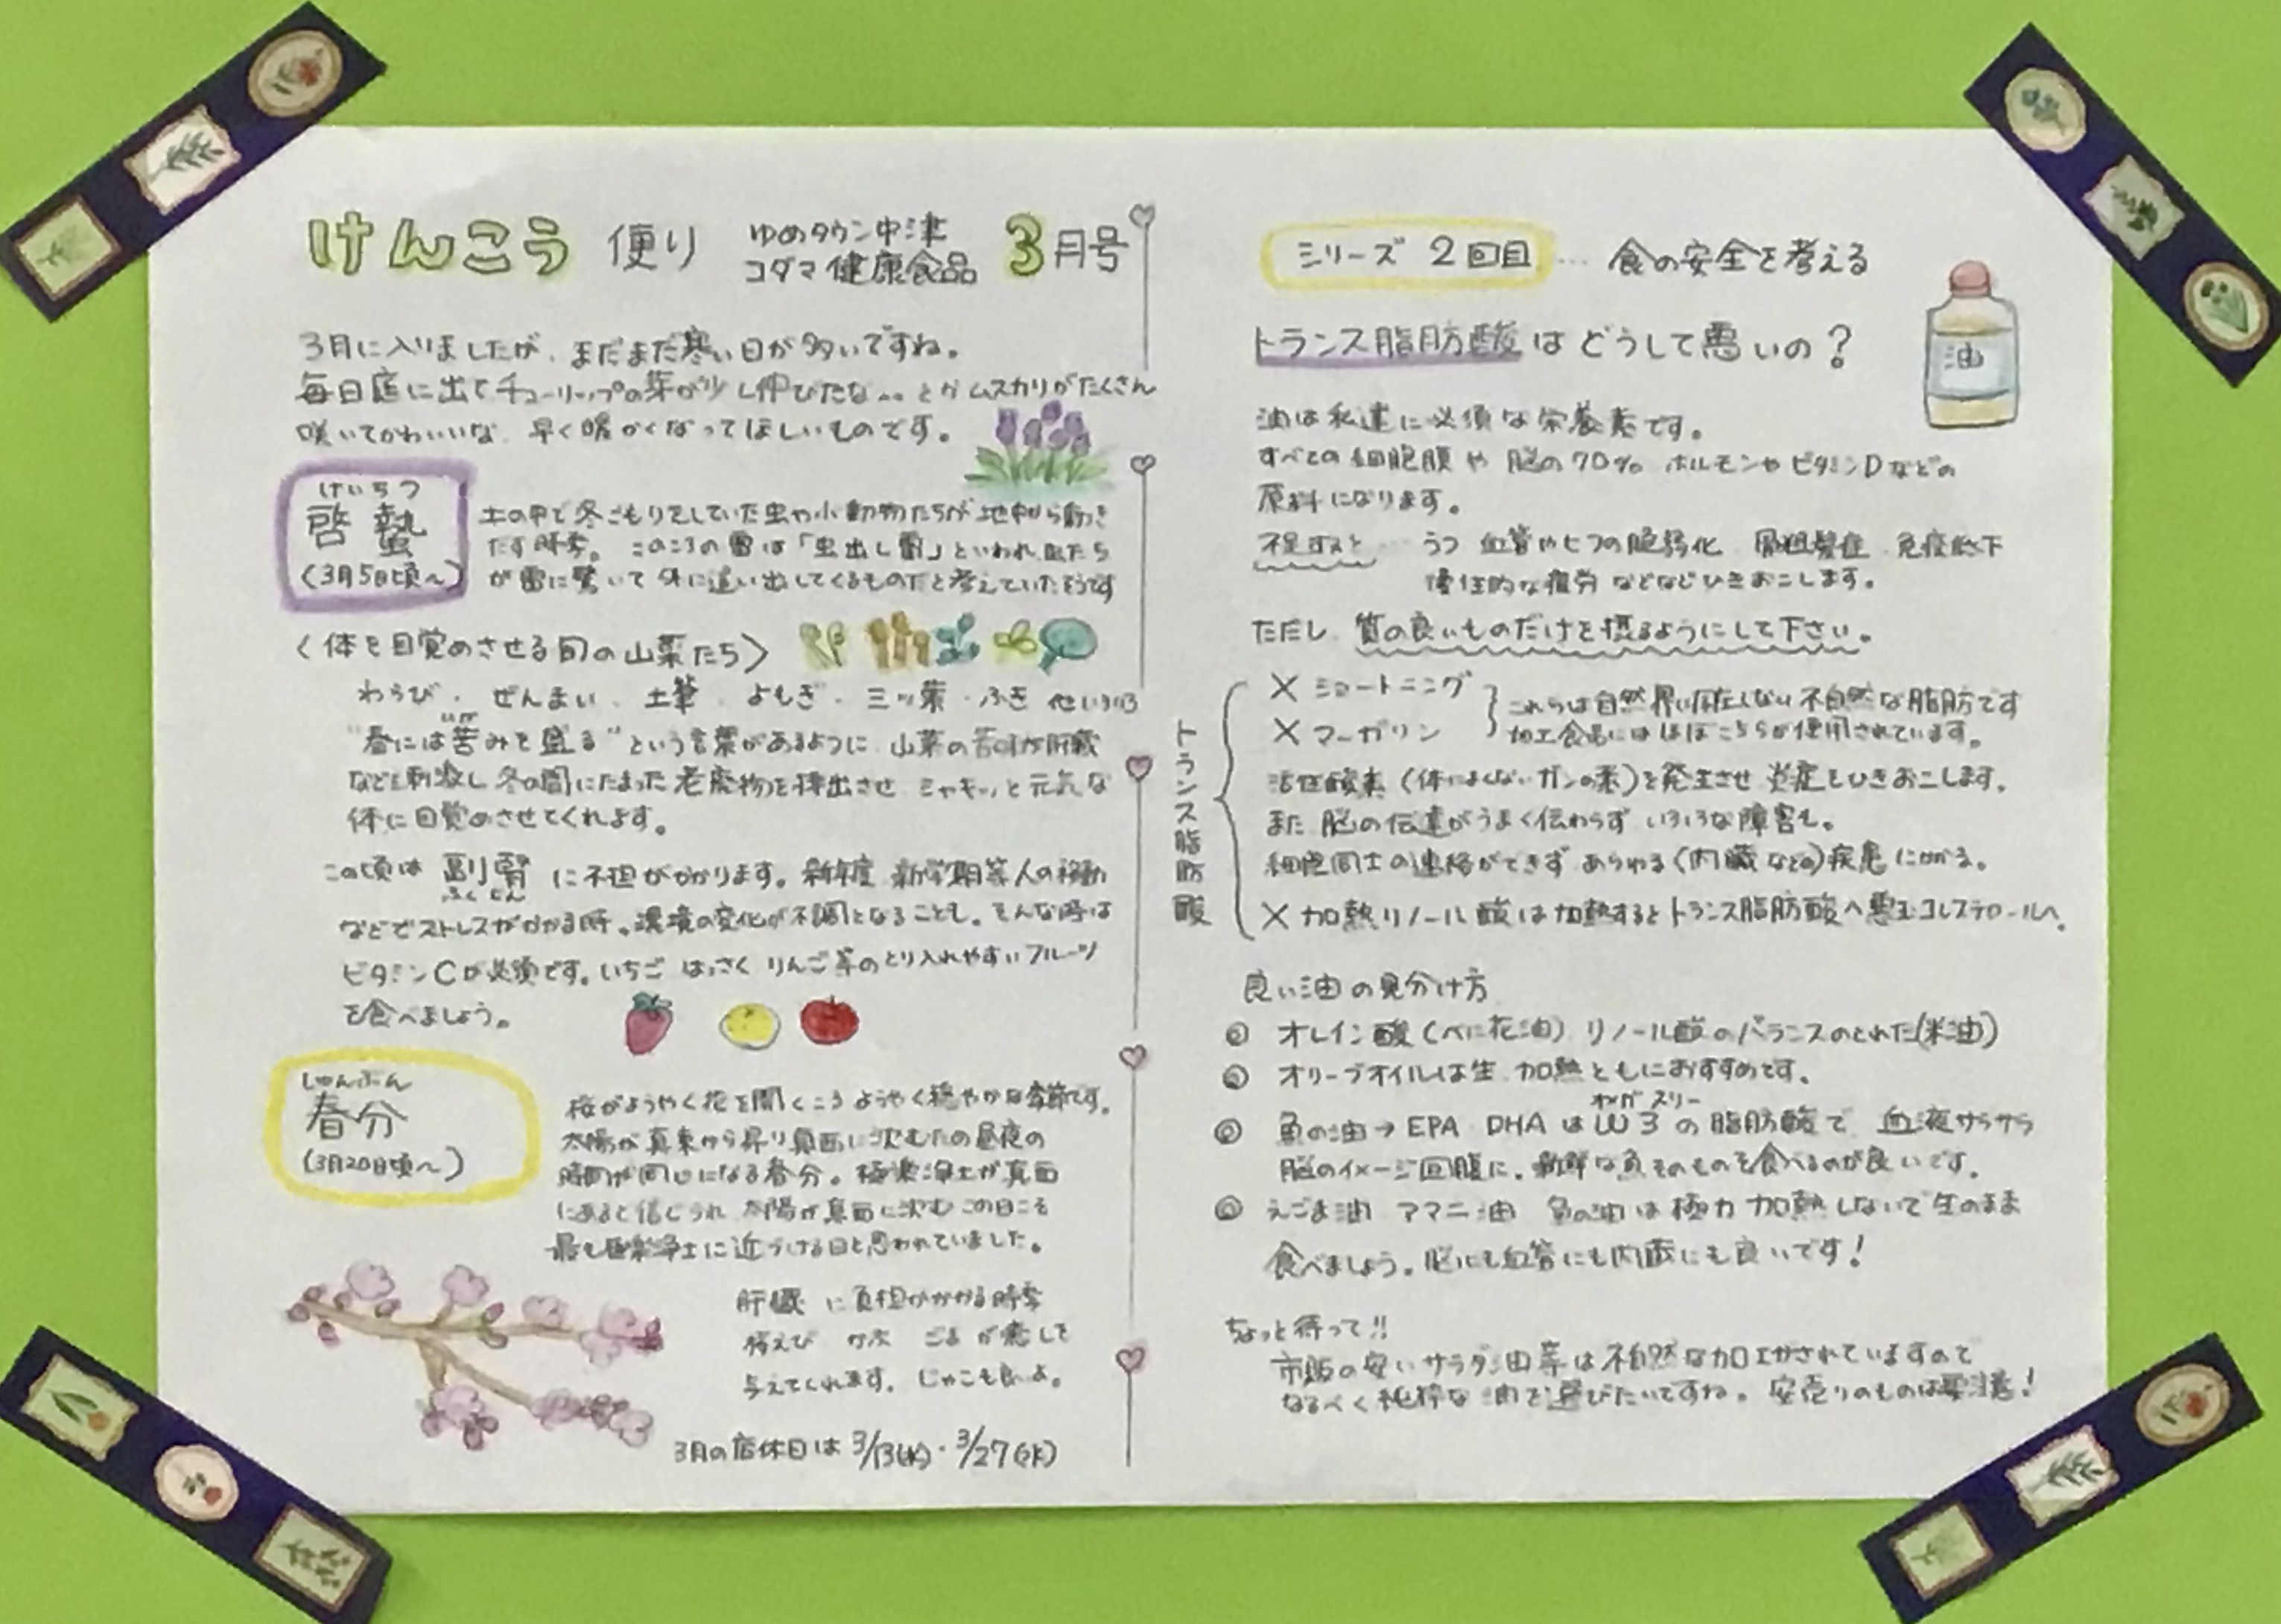 けんこう 便り ゆめタウン中津 コダマ健康食品 3月号
3月に入りましたが、まだまだ寒い日が多いですね。
毎日庭に出てチューリップの芽が少し伸びたな…とか ムスカリがたくさん
咲いてかわいいな 早く暖かくなってほしいものです。
けいちつ
啓蟄
(3月5日頃〜)
土の中で冬ごもりをしていた虫や小動物たちが地中から動き
だす時季。このころの雷は「虫出し雷」といわれ 虫たち
が雷に驚いて外に這い出してくるものだと考えていたそうです
〈体を目覚めさせる旬の山菜たち〉
わらび・ぜんまい・土筆・よもぎ・三ッ葉・ふき 他いろいろ
にが
"春には苦みを盛る"という言葉があるように 山菜の苦味が肝臓
などを刺激し 冬の間にたまった老廃物を排出させ シャキッと元気な
体に目覚めさせてくれます。
この頃は 副腎 に不担がかかります。新年度 新学期等人の移動
ふくじん
などでストレスがかかる時。環境の変化が不調となることも。そんな時は
ビタミンCが必須です。いちご はっさく りんご等のとり入れやすいフルーツ
を食べましょう。
しゅんぶん
春分
(3月20日頃〜)
桜がようやく花を開くころ ようやく穏やかな季節です。
太陽が真東から昇り真西に沈むため昼夜の
時間が同じになる春分。極楽浄土が真西
にあると信じられ 太陽が真西に沈むこの日こそ
最も極楽浄土に近づける日と思われていました。
肝臓 に負担がかかる時季
桜えび ごま が癒しを
与えてくれます。じゃこも良いよ。
3月の店休日は 3/13(水)・3/27(水)
シリーズ 2回目 … 食の安全を考える
トランス脂肪酸はどうして悪いの?
油
油は私達に必須な栄養素です。
すべての細胞膜や 脳の70% ホルモンや ビタミンDなどの
原料になります。
不足すると … うつ 血管やヒフの脆弱化 骨粗鬆症 免疫低下
慢性的な疲労 などなどひきおこします。
ただし 質の良いものだけを摂るようにして下さい。
トランス脂肪酸
× ショートニング
× マーガリン
これらは自然界に存在しない不自然な脂肪です
加工食品にはほぼこちらが使用されています。
活性酸素(体によくないガンの素)を発生させ 炎症をひきおこします。
また 脳の伝達がうまく伝わらず いろいろな障害も。
細胞同士の連絡ができず あらゆる(内臓などの)疾患にかかる。
× 加熱リノール酸は加熱するとトランス脂肪酸へ悪玉コレステロールへ。
良い油の見分け方
◎ オレイン酸(べに花油) リノール酸のバランスのとれた(米油)
◎ オリーブオイルは生 加熱ともにおすすめです。
オメガ スリー
◎ 魚の油→EPA DHAはω3の脂肪酸で 血液サラサラ
脳のイメージ回腹に。新鮮な魚そのものを食べるのが良いです。
◎ えごま油 アマニ油 魚の油は極力加熱しないで生のまま
食べましょう。脳にも血管にも内臓にも良いです!
ちょっと待って!!
市販の安いサラダ油等は不自然な加工がされていますので
なるべく純粋な油を選びたいですね。安売りのものは要注意!